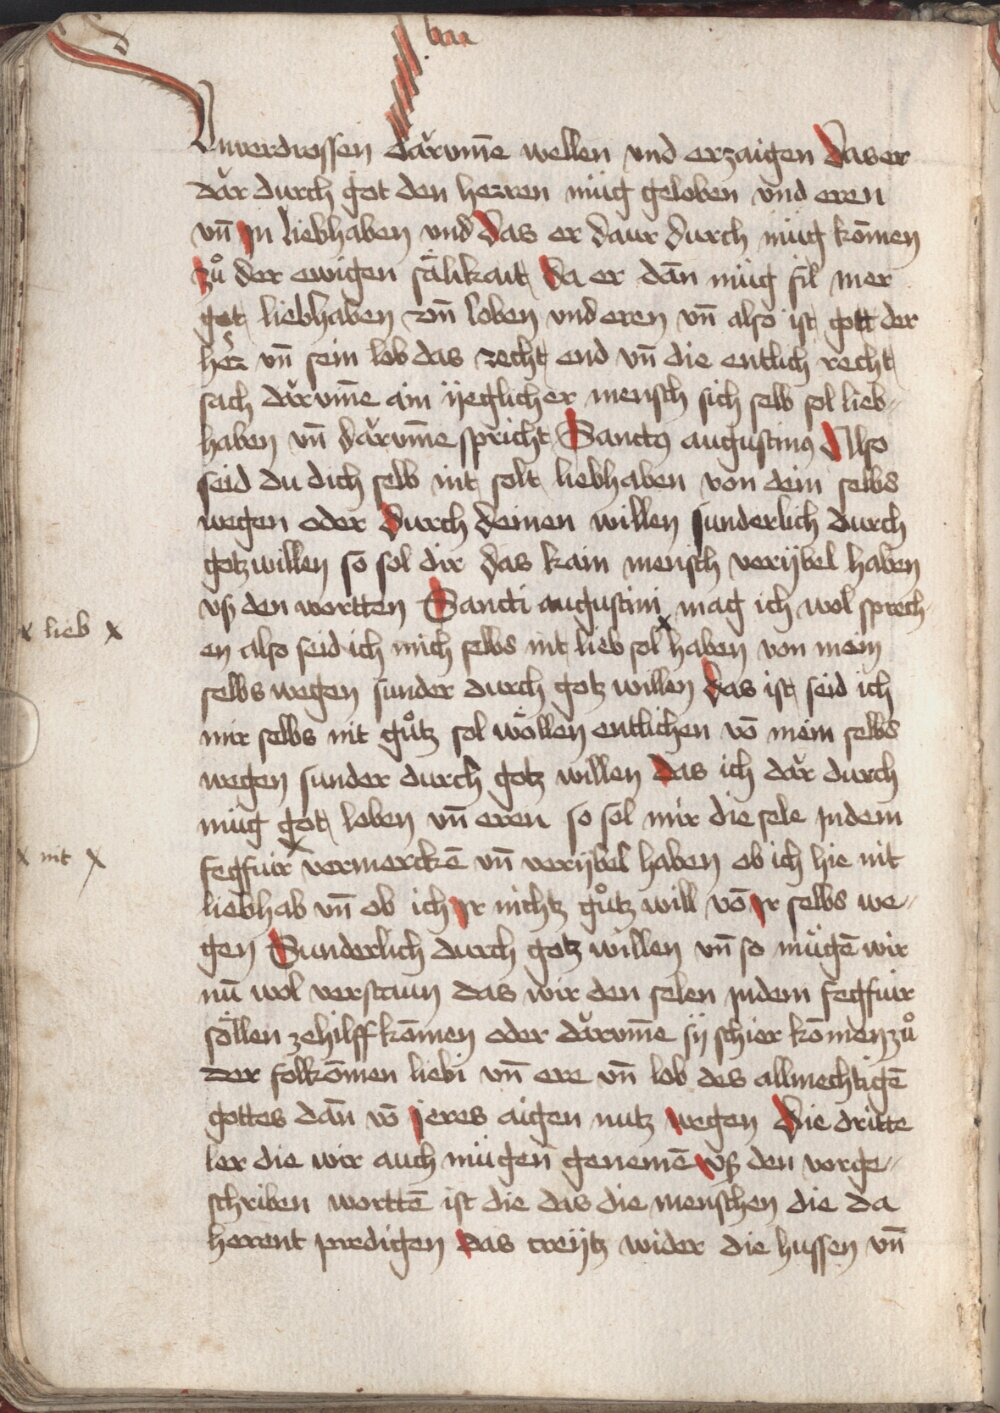 Unverdrossen darumē wellen und erzaigen das er
dar durch got den herren müg geloben vnd eren
vn̄ jn liebhaben vnd das er daur durch müg kōmen
zů der ewigen sälikait da er dān müg fil mer
got liebhaben vn̄ loben vnd eren vn̄ also ist gott der
her vn̄ sein lob das recht end vn̄ die entlich recht
sach darvmē ain yeglicher mensch sich selb sol lieb-
haben vn̄ darvmē spricht Sanctꝯ augustinꝯ Also
seid du dich selb nit solt liebhaben von dein selbs
wegen oder durch deinen willen sunderlich durch
gotz willen so sol dir das kain mensch verÿbel haben
vß den wortten Sancti augustini mag ich wol sprech
x lieb x
en also seid ich mich selbs nit lieb sol haben von mein
selbs wegen sunder durch gotz willen das ist seid ich
mir selbs nit gůtz sol wöllen entlichen vō mein selbs
wegen sunder durch gotz willen das ich dar durch
müg got loben vn̄ eren so sol mir die sele jndem
x nit x
fegfuir vermerckē vn̄ verÿbel haben ob ich hie nit
liebhab vn̄ ob ich jr nichtz gůtz will vō jr selbs we-
gen Sunderlich durch gotz willen vn̄ so mügē wir
nū wol verstaun das wir den selen jndem fegfuir
söllen zehilff kōmen oder darvmē sÿ schier kōmen zů
der folkōmen liebi vn̄ ere vn̄ lob des allmechtigē
gottes dān vō jeres aigen nutz wegen Die dritte
ler die wir auch mügen genemē vß den vorge-
schriben worttē ist die das die menschen die da
herent predigen das creÿtz wider die hussen vn̄